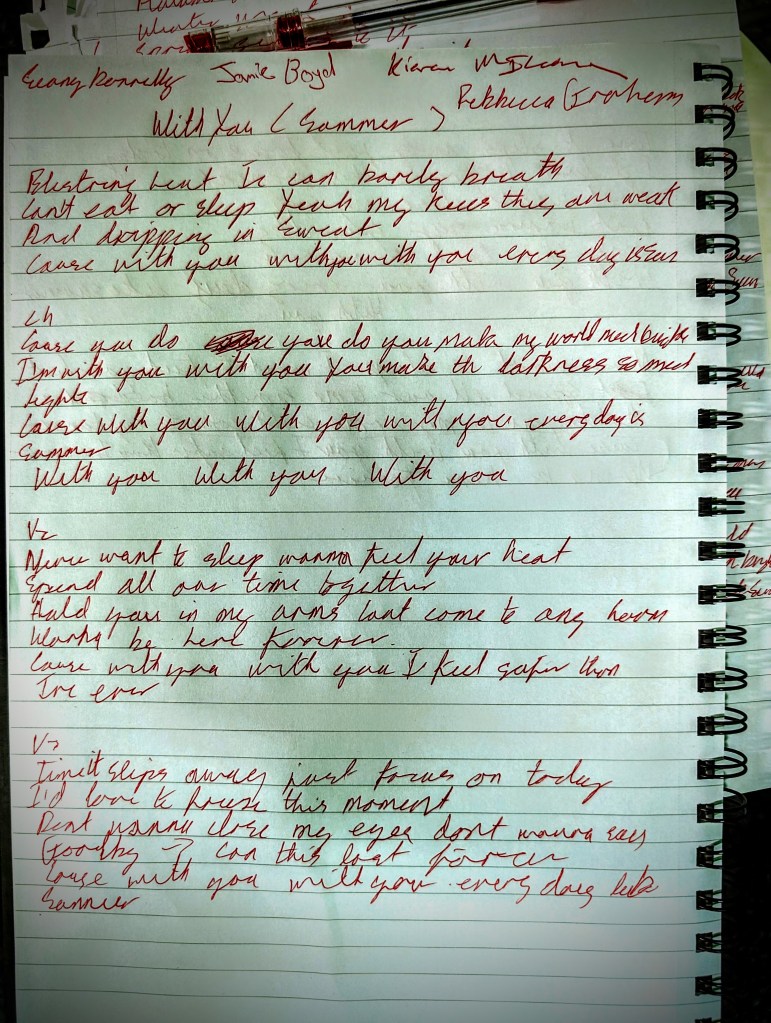 Jamie Boyd Kieran
Rebbecca Grahem
With You (Summer)
Blistring heat I can barely breath
Can't eat or sleep Yeah my knees they are weak
And dripping in sweat
Cause with you with you with you every day is
ch
Cause you do you do you make my world much
I'm with you with you You make th darkness so much
lights
Cause with you with you with you every day is
Summer
With you With you With you
V2
Never want to sleep wanna feel your heat
Spend all our time together
Hold you in my arms come to any harm
Wanna be here Forever.
Cause with you with you I feel safer than
I've ever
V3
Time it slips away just focus on today
I'd love to freeze this moment
Dont wanna close my eyes dont wanna say
can this last
Cause with you with you every day like
Summer